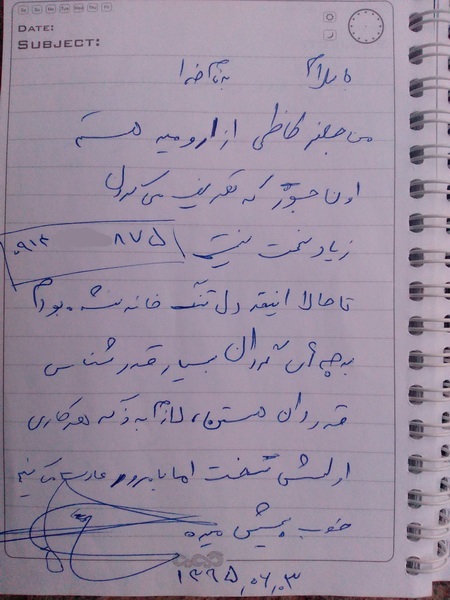 Sa Su Mo Tue Wed Thu Fri
DATE:
SUBJECT:
با سلام به نام خدا
من جعفر کاظمی از ارومیه هستم
اونا جور که تعریف می کردن
زیاد سخت نیست ۰۹۱۴ ۸۷۵
تا حالا اینقد دل تنگ خانه نشده بودم
بچه های تهران بسیار قدر شناس
قدردان هستن، لازم به ذکره هر کاری
اولش سخت اما بامرور عادت می کنیم
خوب پیش میره
۱۳۹۵,۰۶,۰۳